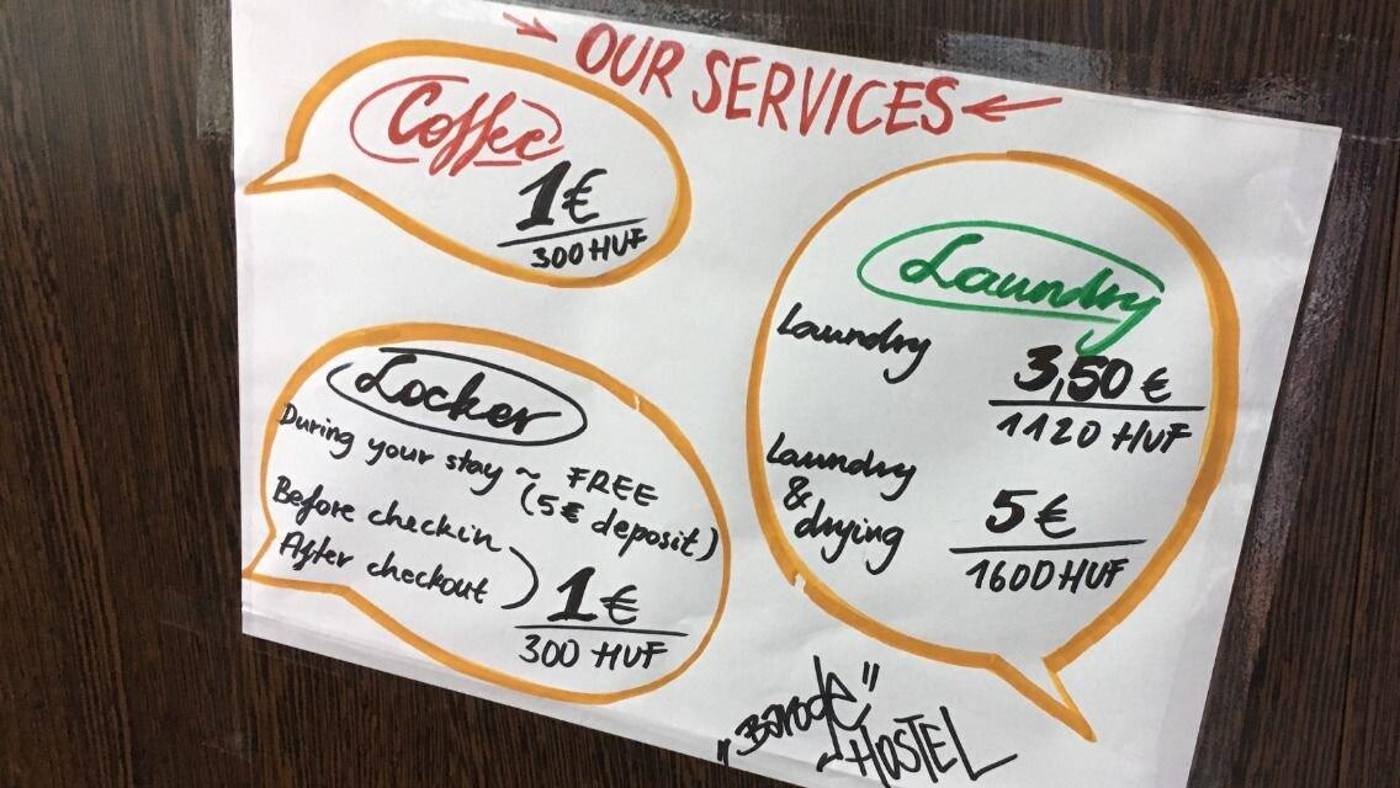 OUR SERVICES
Coffee
1€
300 HUF
Laundry
Laundry
3,50 €
1120 HUF
Laundry
&
drying
5€
1600 HUF
Locker
During your stay ~ FREE
(5€ deposit)
Before checkin
After checkout
1€
300 HUF
HOSTEL